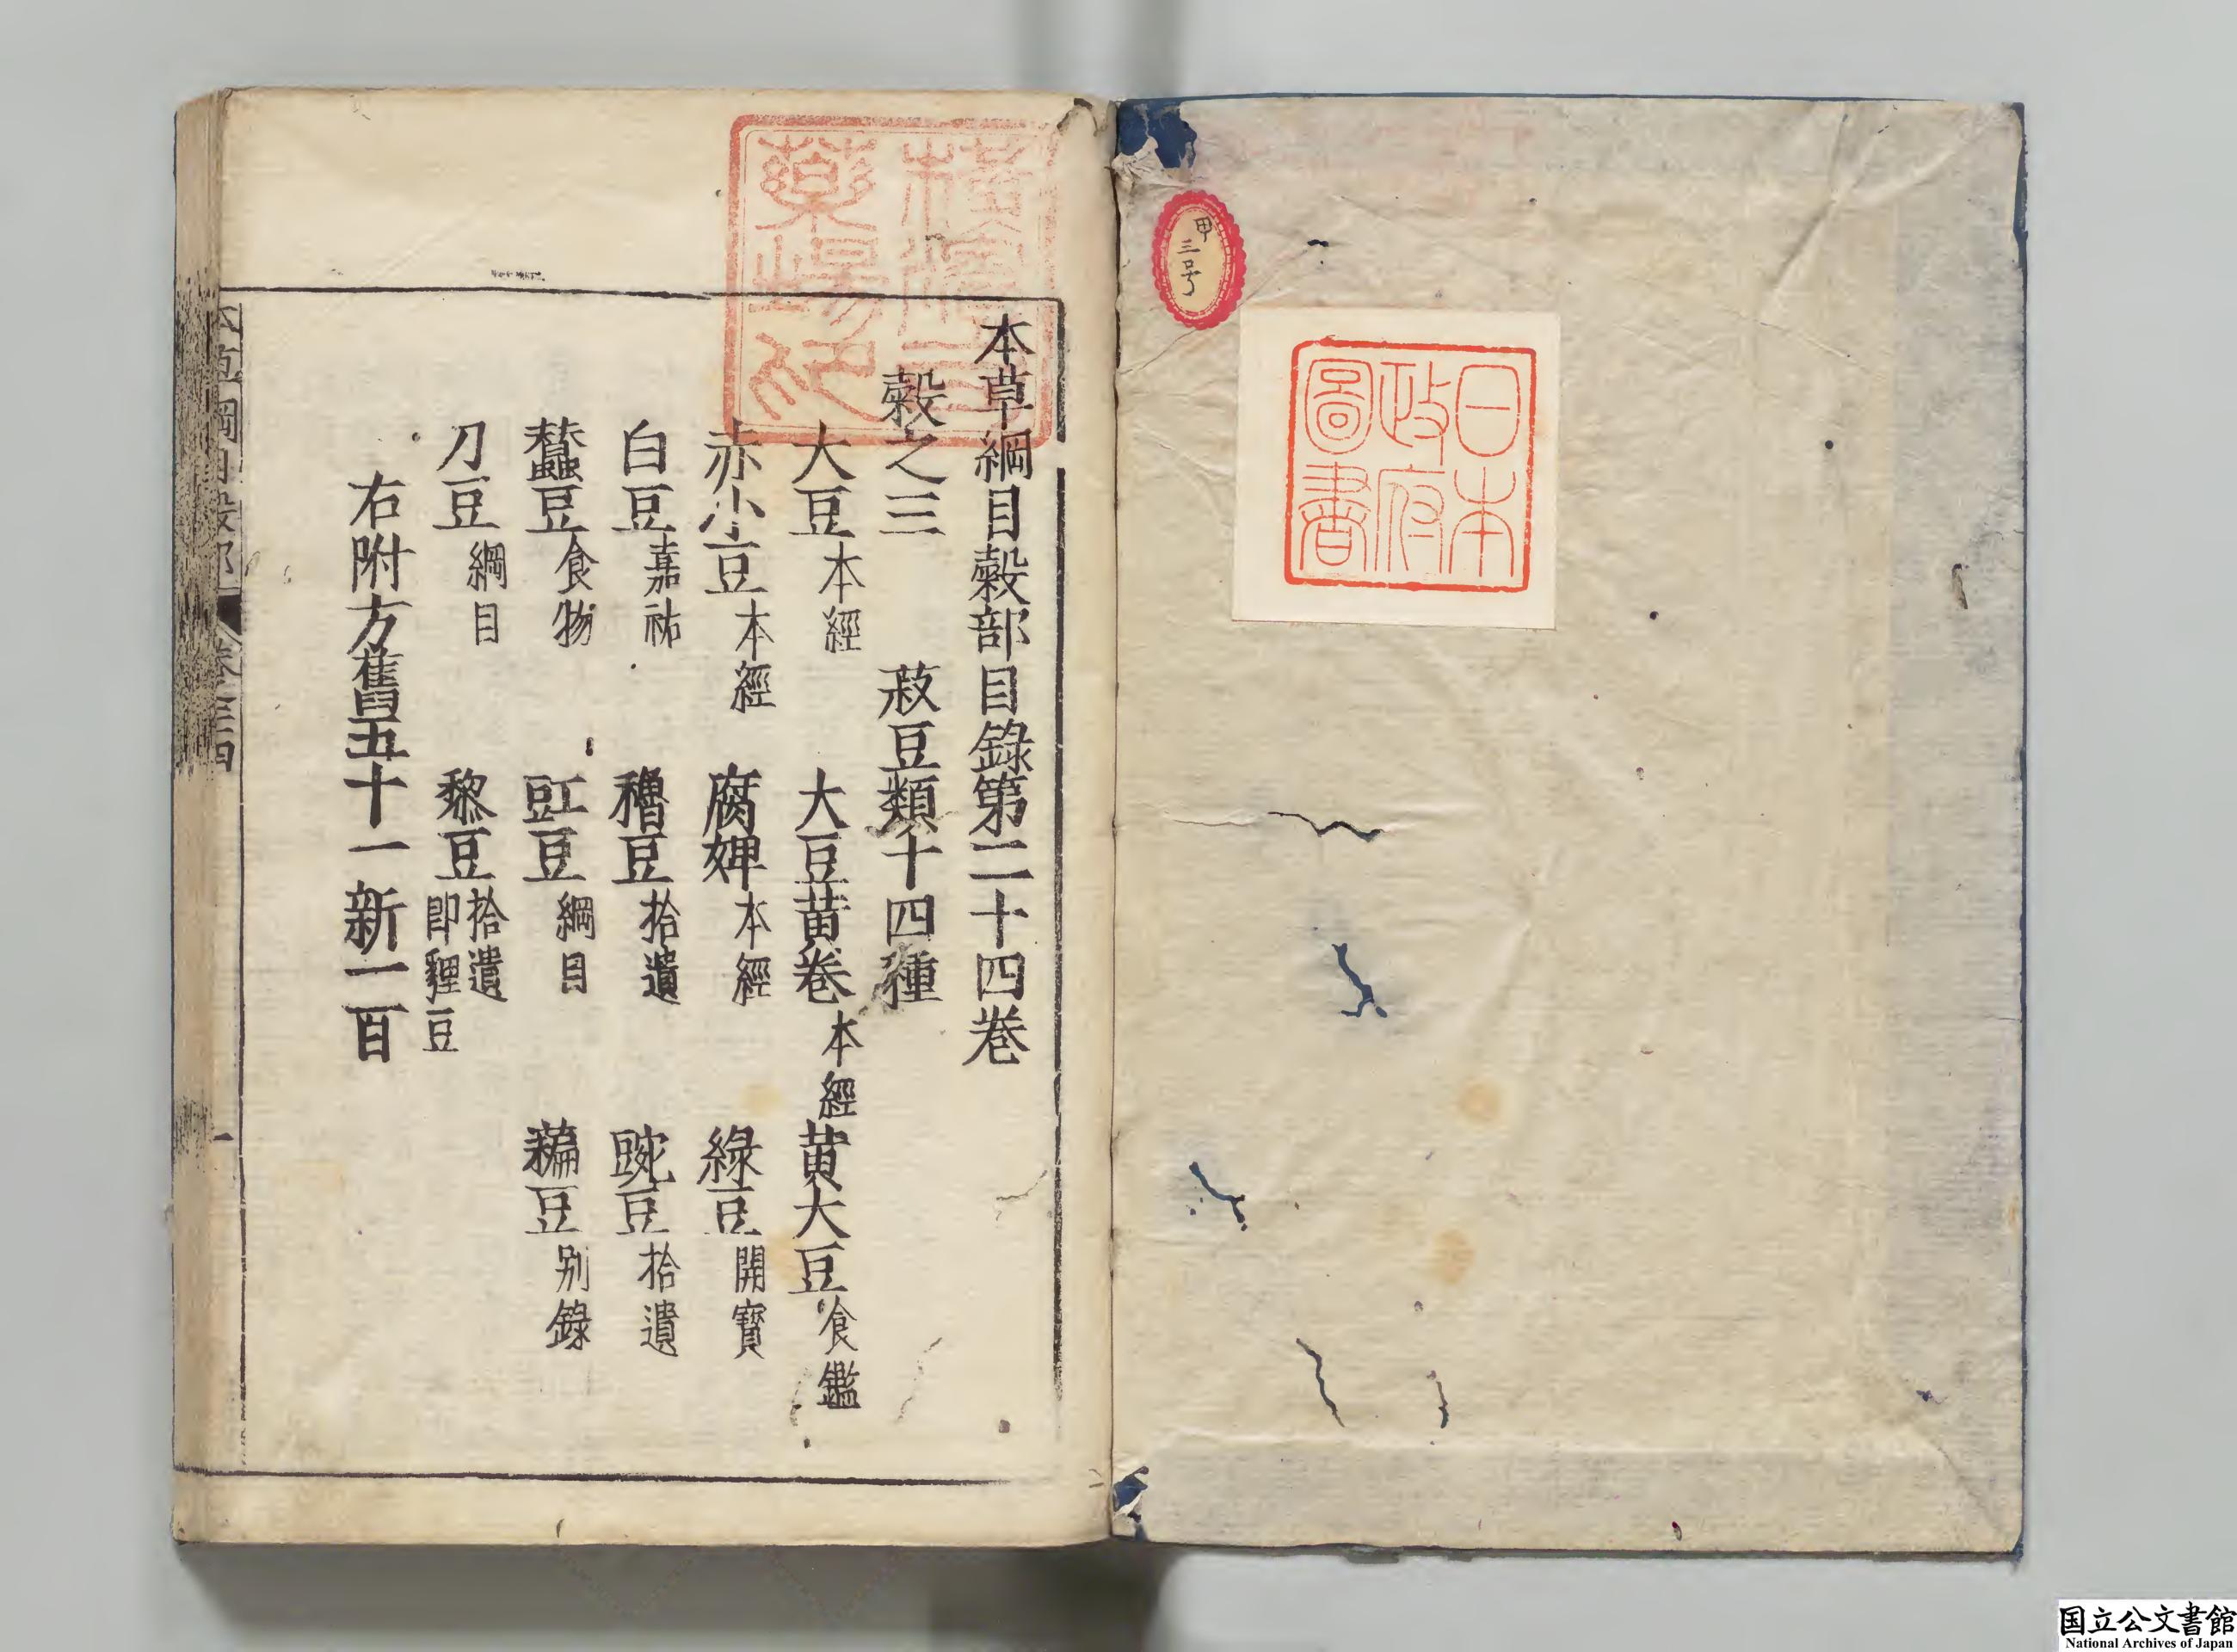 甲
三号
日本
政府
圖書
本草綱目穀部目錄第二十四卷
穀之三　菽豆類十四種
大豆本經　大豆黃卷本經　黃大豆食鑑
赤小豆本經　腐婢本經　綠豆開寶
白豆嘉祐　穭豆拾遺　豌豆拾遺
蠶豆食物　豇豆綱目　藊豆別錄
刀豆綱目　黎豆拾遺即貍豆
右附方舊五十一新一百
国立公文書館
National Archives of Japan